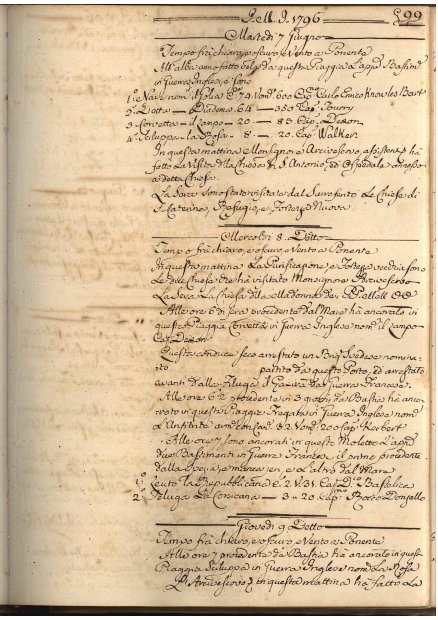 1796
99
Martedì 7 Giugno
Tempo frà chiaro, e oscuro, e Vento a Ponente
All'alba anno fatto vela da questa Piaggia
in Guerra Inglesi, e sono
1° Nave nom. C. 74 Vom. 600 Knowles Bart
2° Detta — Diadema 64 — 350 Cap. Towry
3° Corvetta — il Lampo — 20 — 83 Cap. Dixon
4° Feluppa la Rosa — 8 — 20. Cap. Walker.
In questa mattina Monsignore Arcivescovo,
fatto la Visita della Chiesa di S. Antonio, ed Ospedale
a detta Chiesa.
La Sera sono state visitate dal Le Chiese di
S. Caterina, Rifugio, e Fortezza Nuova.
Mercoldì 8. Detto
Tempo frà chiaro, e oscuro, e Vento a Ponente
In questa mattina La Purificazione, e Fortezza vecchia sono
Le due Chiese che hà visitato Monsignore Arcivescovo
La Sera La Chiesa della Madonna dei
Alle ore 6 di sera procedente dal Mare hà ancorato in
questa Piaggia Corvetta in Guerra Inglese nom. il Lampo
Cap. Dixon
Questa conduce seco arrestato un Brig. Svedese nomina-
to partito da questo Porto, ed arrestato
avanti dalle Feluga da Guerra Francese.
Alle ore 6 2 procedente in 3 giorni da Bastia hà anco-
rato in questa Piaggia Fregata in Guerra Inglese nom.
L'Anfitrite 200 Cap. Herbert
Alle ore 7 sono ancorati in questo Molo
due Bastimenti in Guerra Francesi il primo procedente
dalla e l'altro dal Mare
1° Leuto La Repubblicana C. 2 V. 31 Cap. Basilica
2° Feluga La Corsicana — 3 20 Cap. Rocco Donzello
Giovedì 9 Detto
Tempo frà chiaro, e oscuro, e Vento a Ponente
Alle ore 7 procedente da Bastia hà ancorato in questa
Piaggia Siluppa in Guerra Inglese nom. La Rosa
L'Arcivescovo in questa mattina hà fatto La